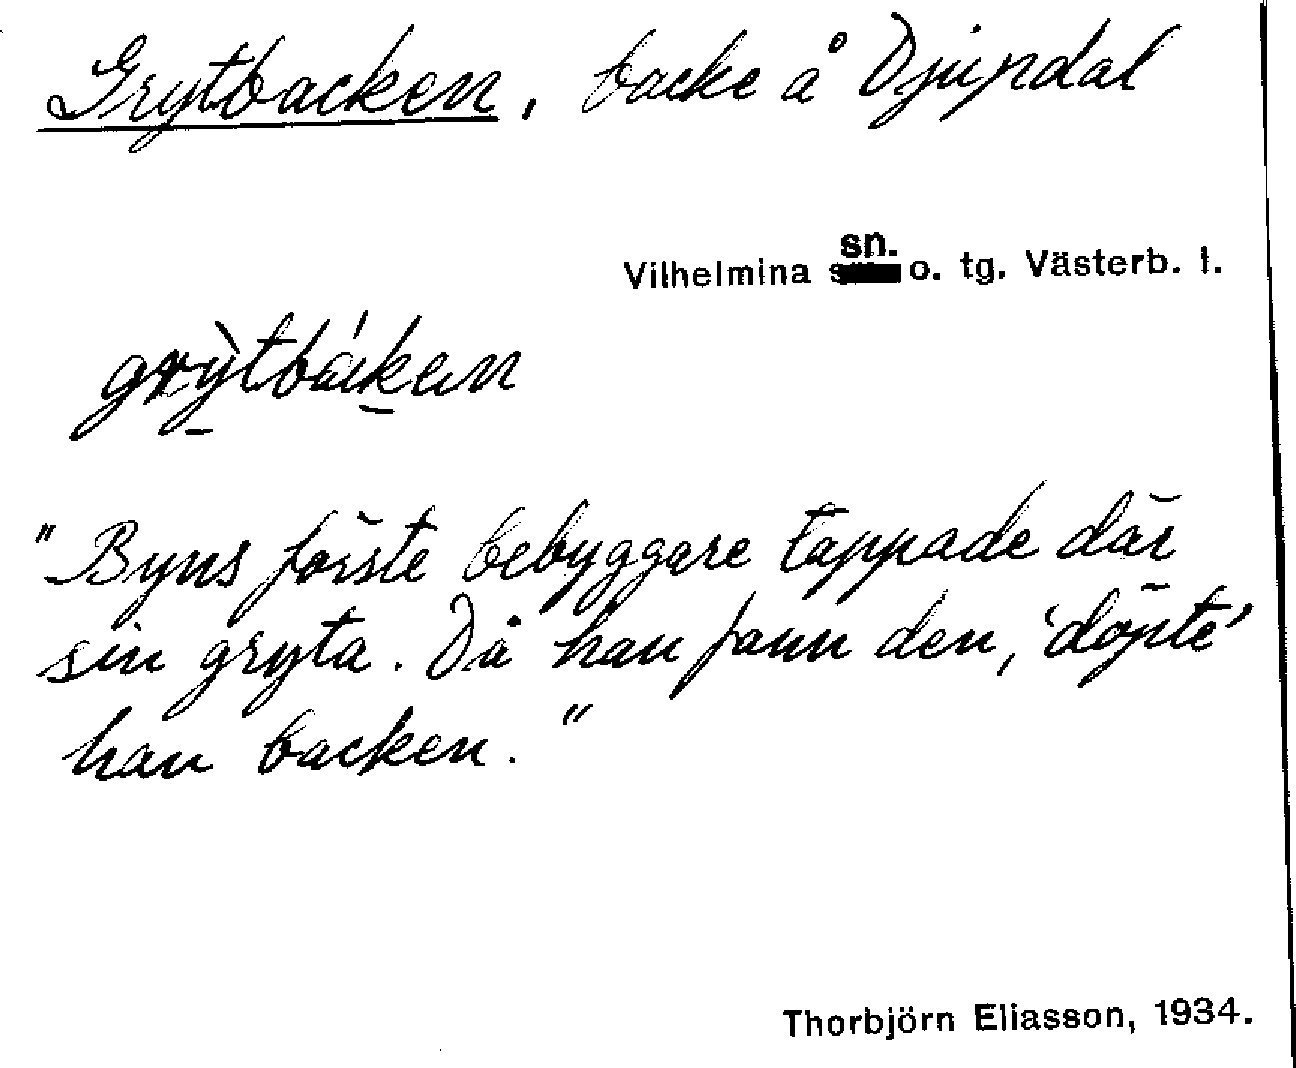 Grytbacken, backe å Djupdal
Vilhelmina sn. o. tg. Västerb. l.
grỳtbákan
"Byns förste bebyggare tappade där
sin gryta. Då han fann den, 'döpte'
han backen."
Thorbjörn Eliasson, 1934.